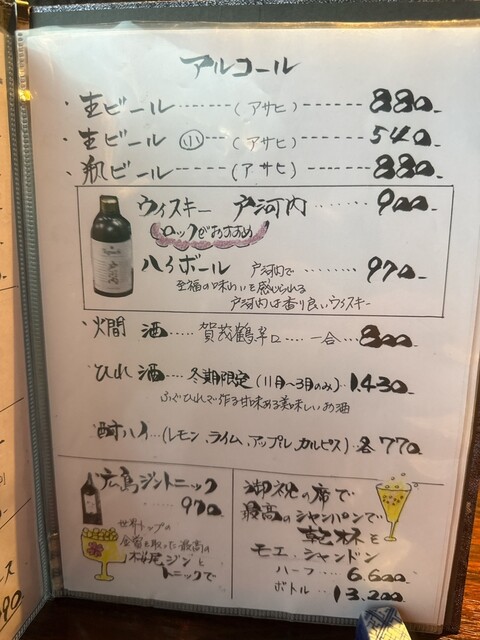 アルコール
・生ビール……(アサヒ)-----880.-
・生ビール ㊙小 (アサヒ)-----540.-
・瓶ビール……(アサヒ)-----880.-
ウィスキー 戸河内……900.-
ロックがおすすめ
ハイボール 戸河内で……970.-
至福の味わいを感じられる
戸河内は香り良いウィスキー
戸河内
・燗酒……賀茂鶴辛口……一合…800.-
・ひれ酒……冬期限定(11月〜3月のみ)・1.430.-
ふぐひれで作る甘味ある美味しいお酒
・酎ハイ…(レモン、ライム、アップル、カルピス)各770.-
広島ジントニック
970.-
世界トップの
金賞を取った最高の
桜尾ジンと
トニックで
御祝の席で
最高のシャンパンで
乾杯を
モエ・シャンドン
ハーフ…6.600.-
ボトル…13.200.-